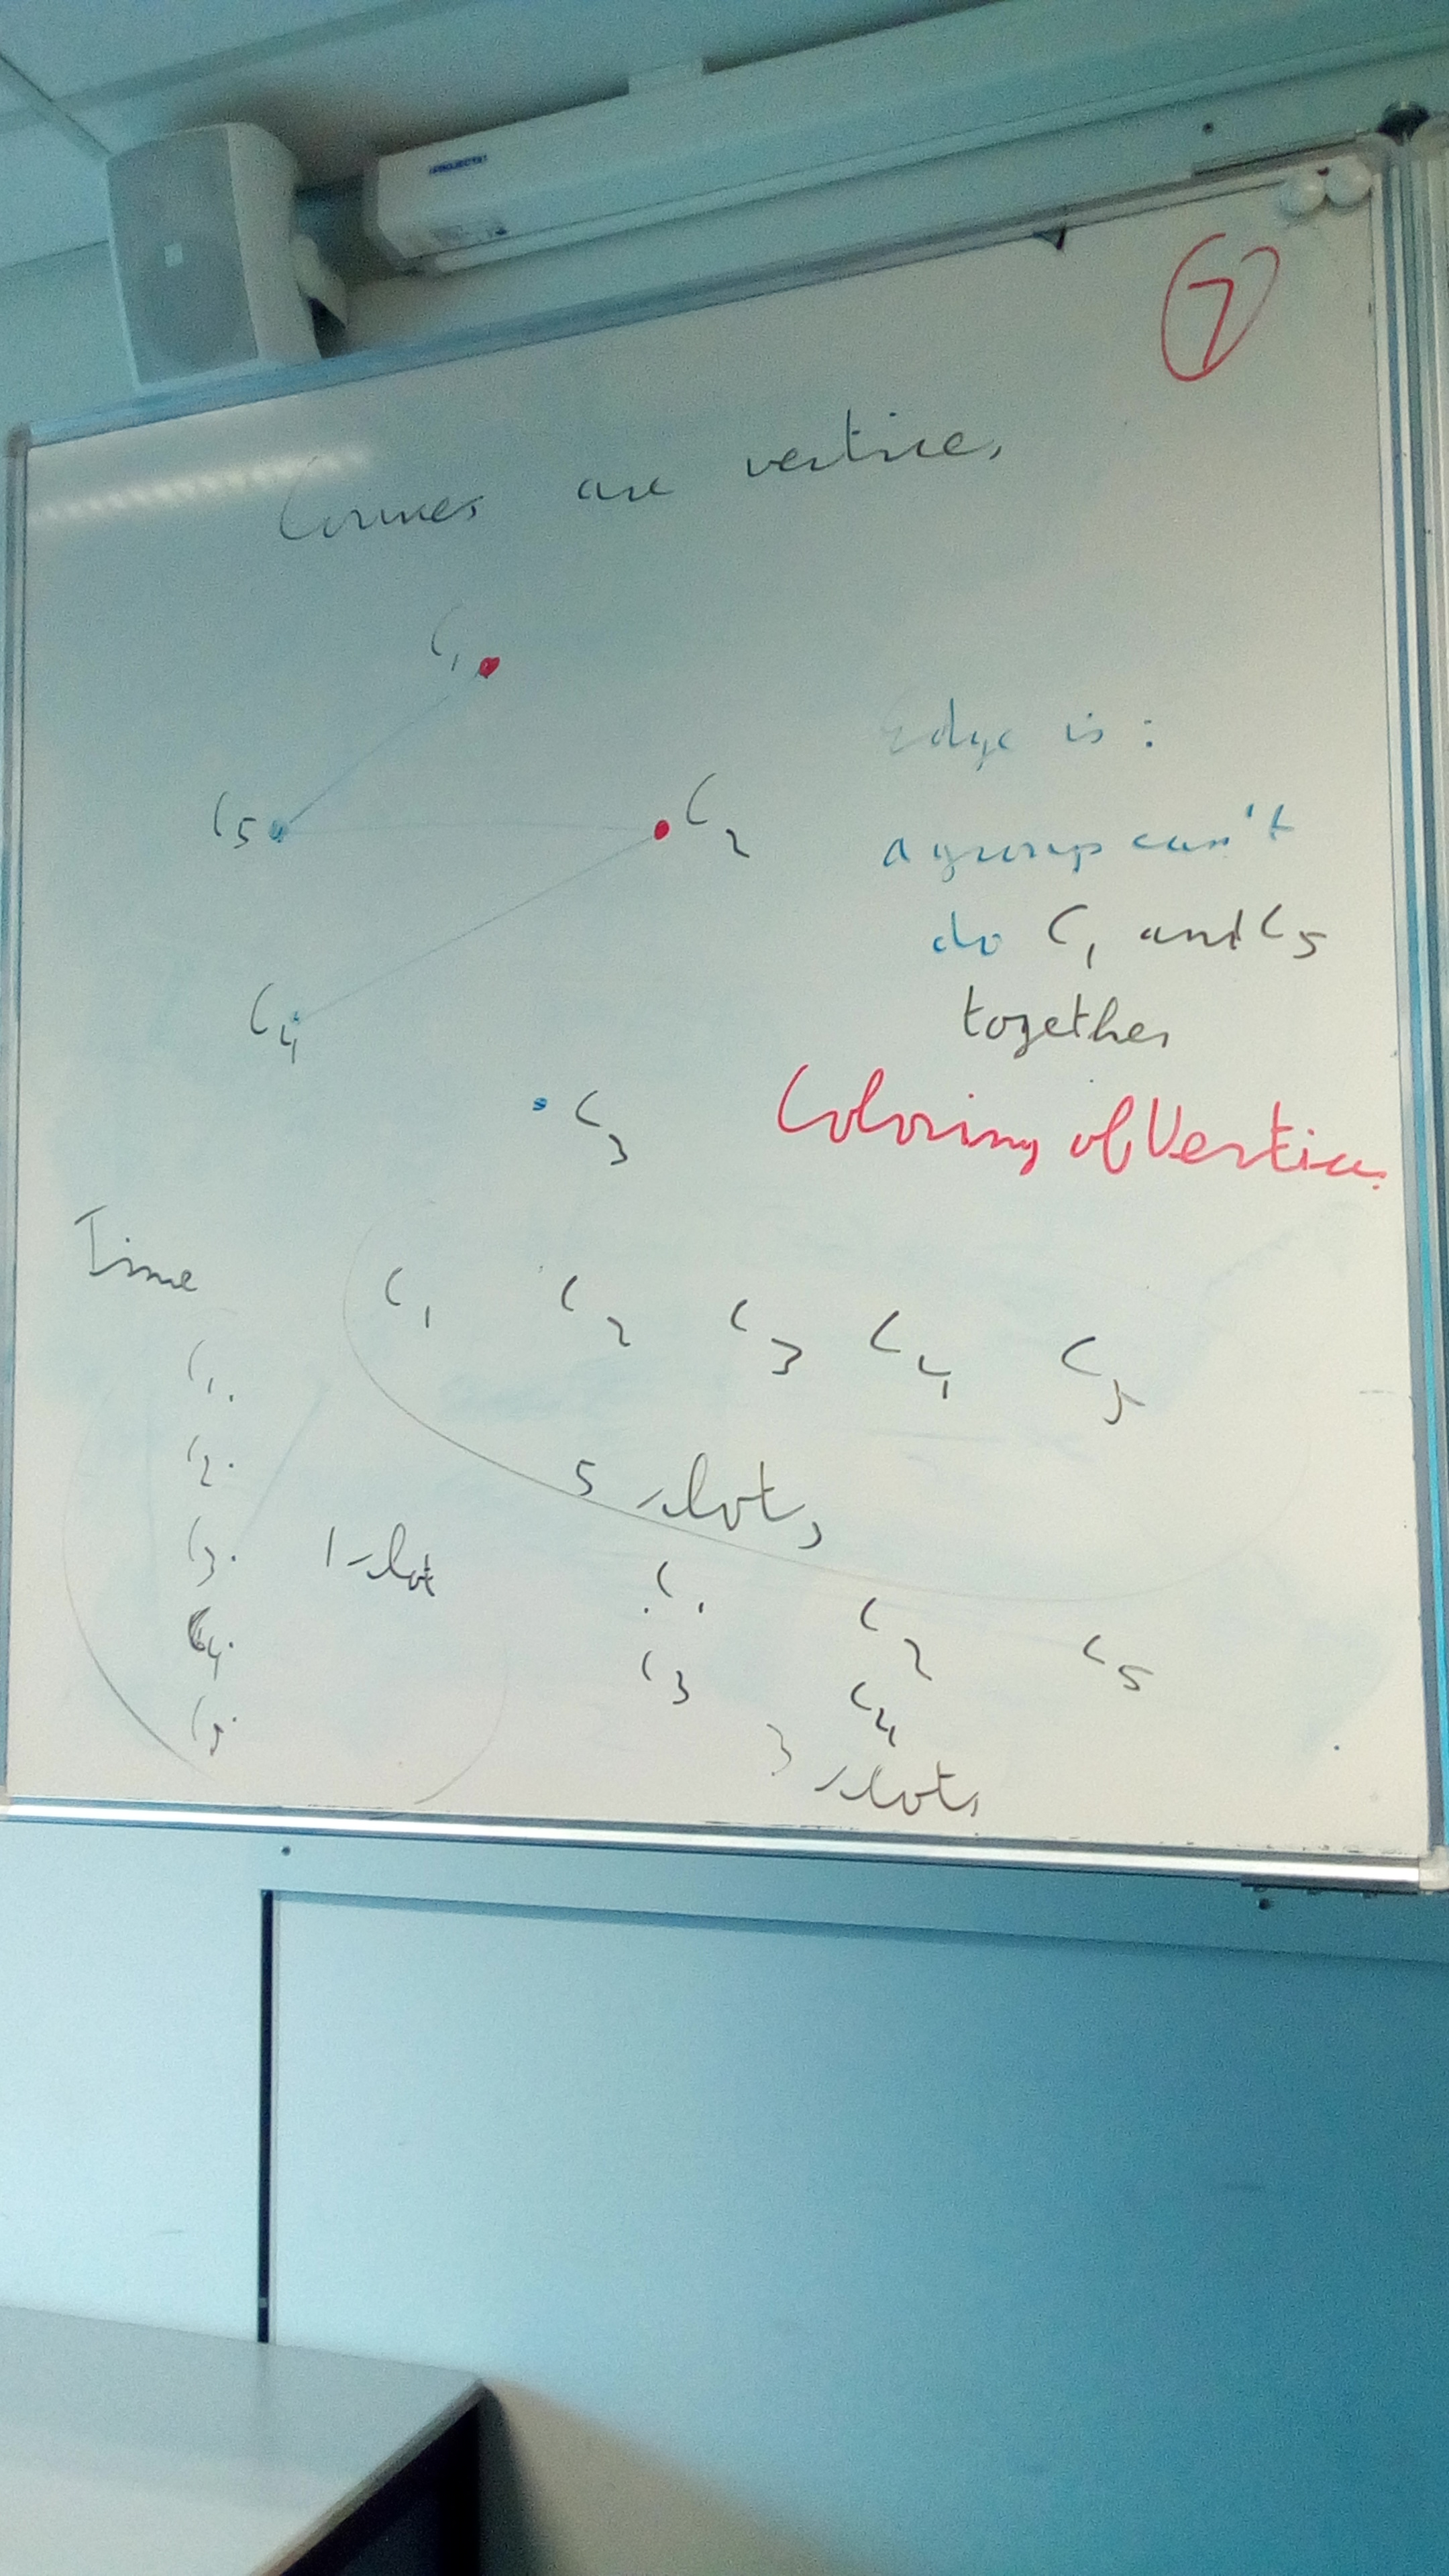 PROJECTA
7
Courses are vertices
C1
C5
C2
C4
C3
Edge is:
a group can't
do C1 and C5
together
Coloring of Vertices
Time
C1 C2 C3 C4 C5
5 slots
C1.
C2.
C3.
C4.
C5.
1 slot
C1 C2 C5
C3 C4
3 slots